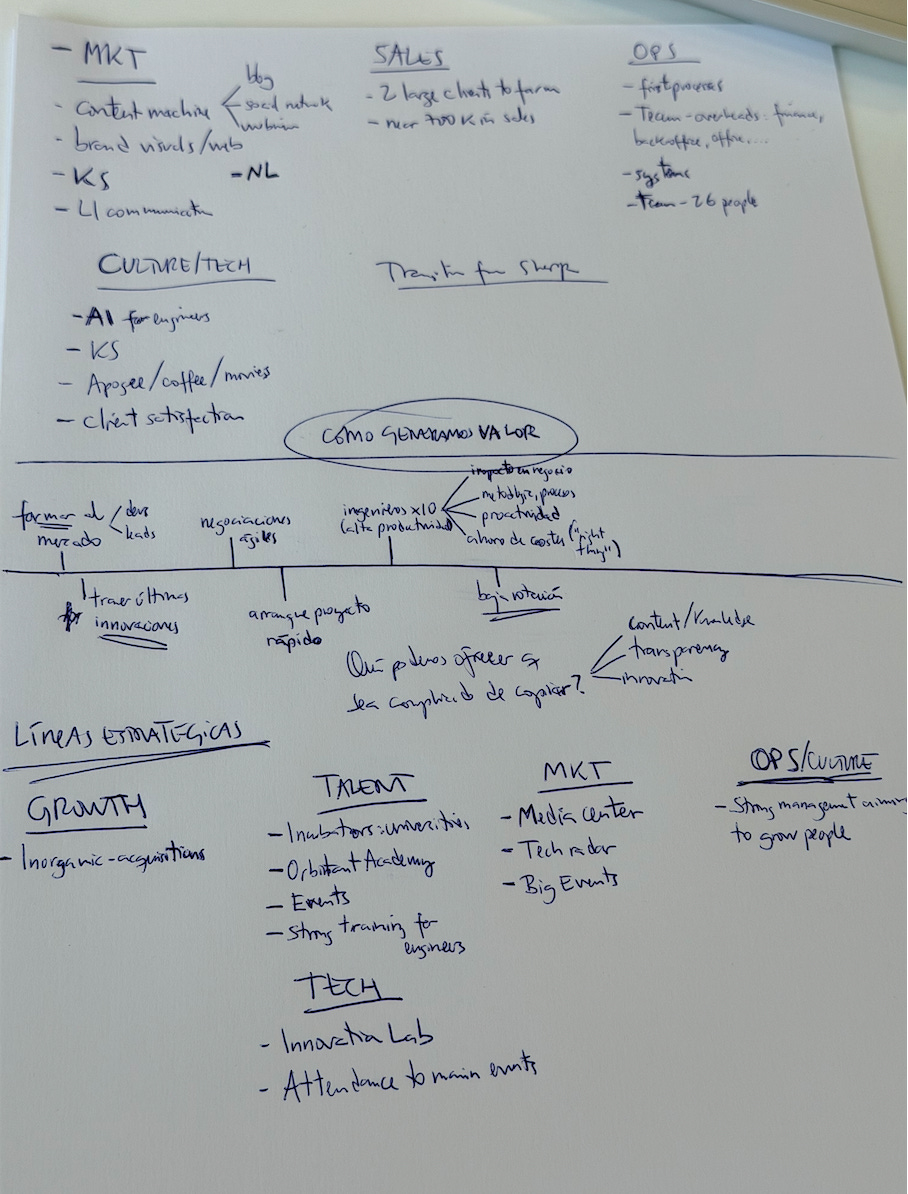 - MKT
- content machine
blog
social network
webinar
- brand visuals/web
- KS
- NL
- LI communication
SALES
- 2 large clients to farm
- near 700K in sales
OPS
- first processes
- Team - overheads: finance,
backoffice, office, ...
- systems
- Team - 26 people
CULTURE/TECH
- AI for engineers
- KS
- Apogee/coffee/movies
- client satisfaction
CÓMO GENERAMOS VALOR
formar al
mercado
devs
leads
negociaciones
ágiles
ingenieros x10
(alta productividad)
impacto en negocio
metodología, procesos
proactividad
ahorro de costes ("right
thing")
traer últimas
innovaciones
arranque proyecto
rápido
baja rotación
Qué podemos ofrecer q
sea complicado de copiar?
content/Knowledge
transparency
innovation
LÍNEAS ESTRATÉGICAS
GROWTH
- Inorganic - acquisitions
TALENT
- Incubators: universities
- Orbitant Academy
- Events
- Strong training for
engineers
MKT
- Media center
- Tech radar
- Big Events
OPS/CULTURE
- Strong management aiming
to grow people
TECH
- Innovation Lab
- Attendance to main events